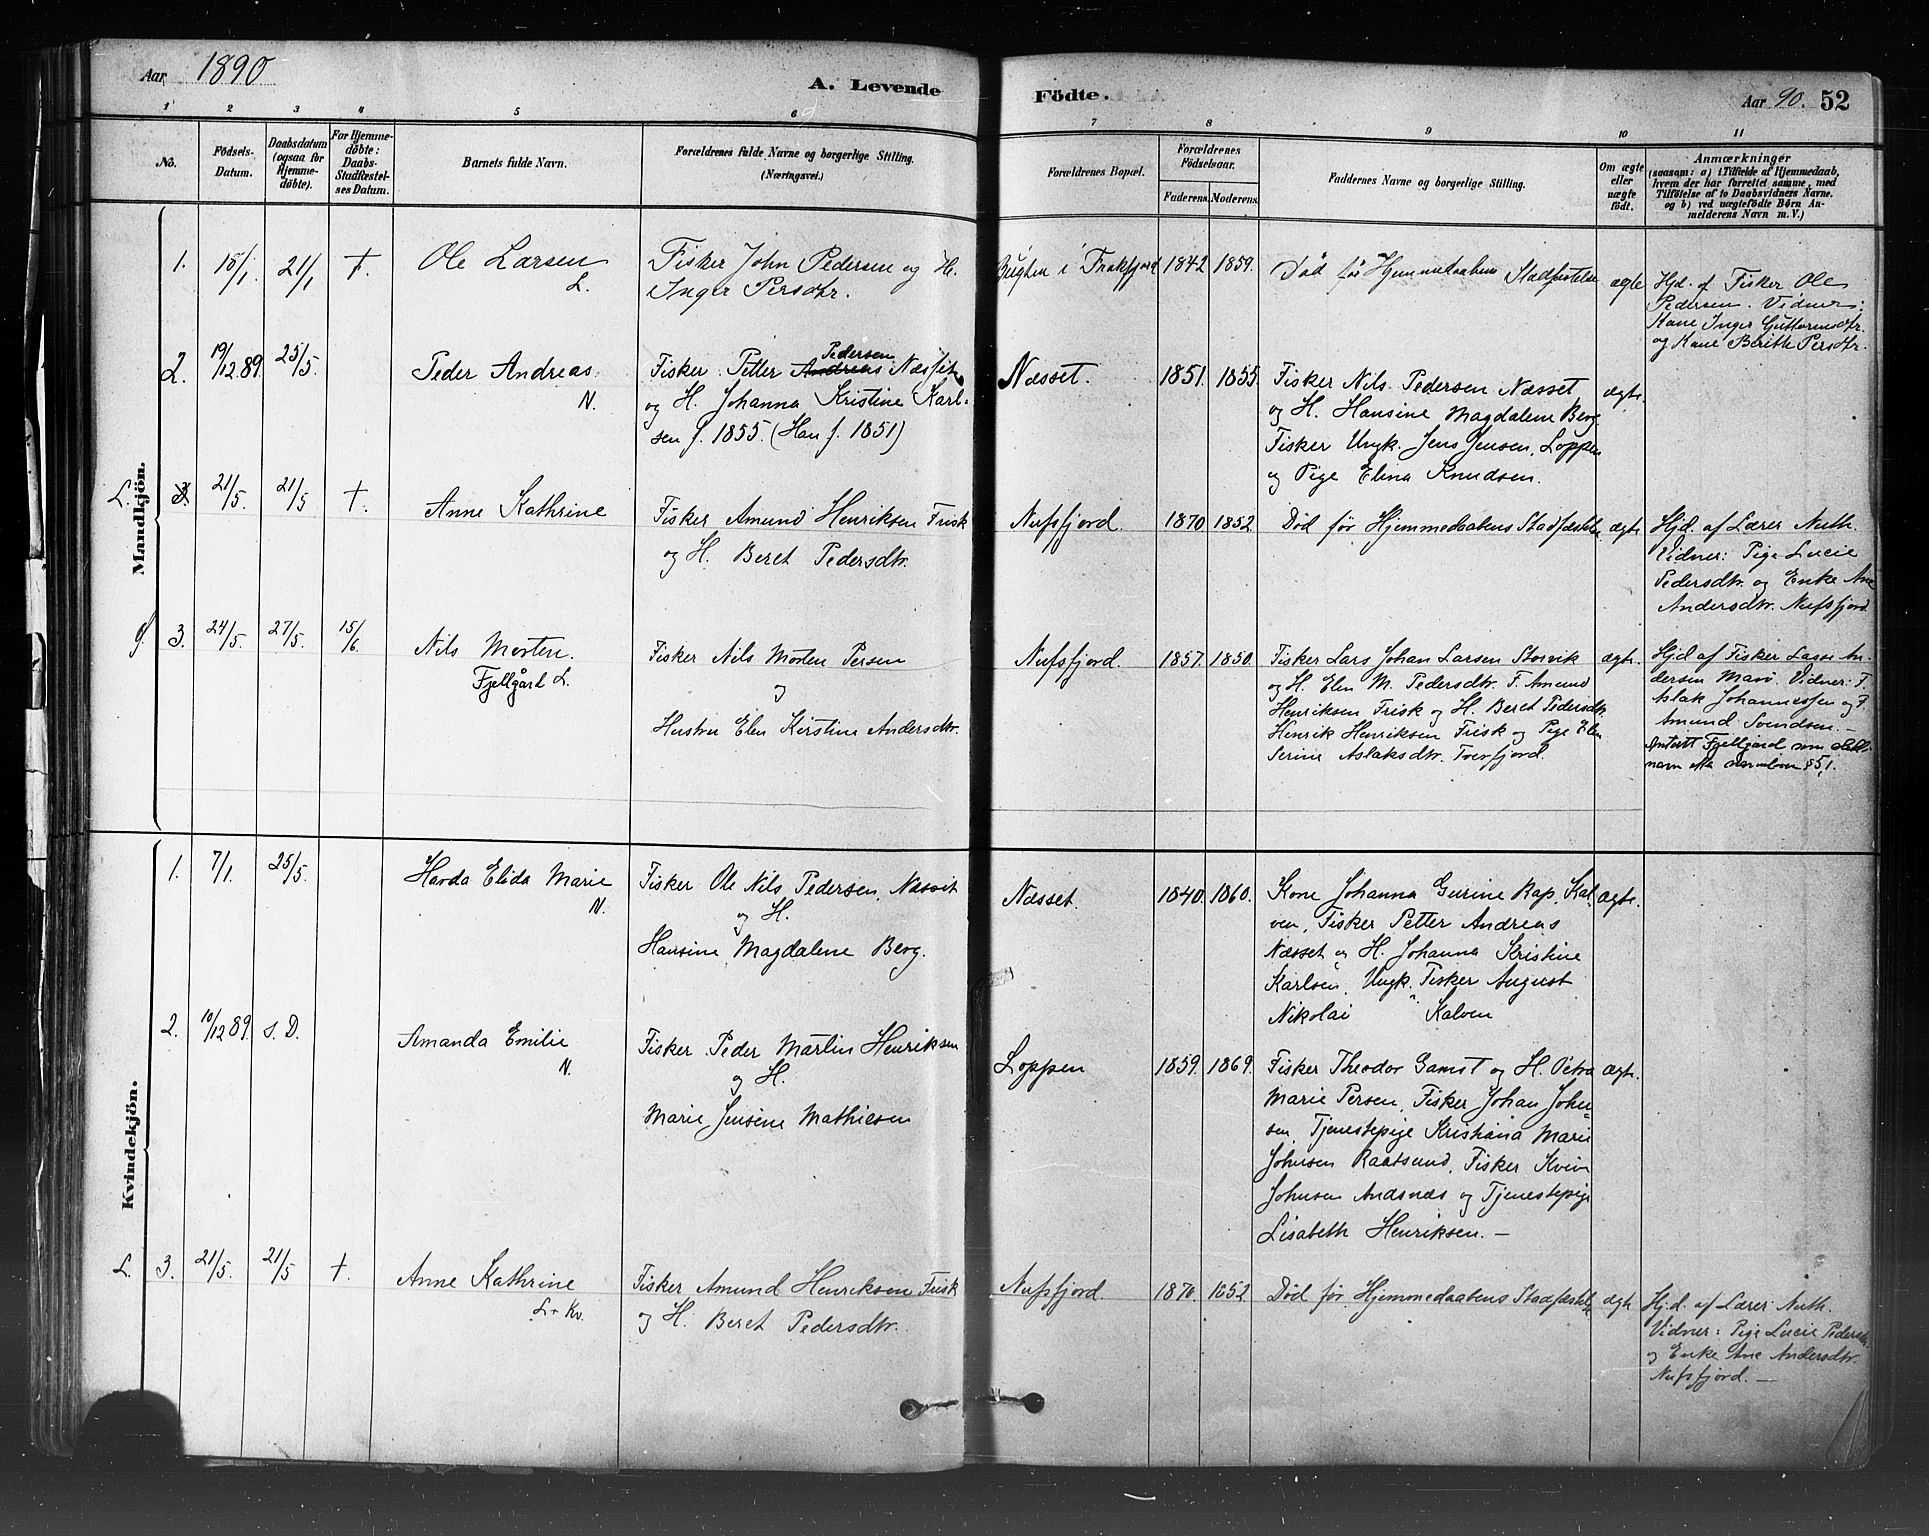 Aar 1890
A. Levende Födte.
Aar 90. 52
1 2 3 4 5 6 7 8 9 10 11
No.
Födsels-
Datum.
Daabsdatum
(ogsaa for
Hjemme-
döbte).
For Hjemme-
döbte:
Daabs-
Stadfæstel-
ses Datum.
Barnets fulde Navn.
Forældrenes fulde Navne og borgerlige Stilling.
(Næringsvei.)
Forældrenes Bopæl.
Forældrenes
Födselsaar.
Faderens. Moderens.
Faddernes Navne og borgerlige Stilling.
Om ægte
eller
uægte
födt.
Anmærkninger
(saasom: a) i Tilfælde af Hjemmedaab,
hvem der har forrettet samme, med
Tilföielse af to Daabsvidners Navne.
og b) ved uægtefödte Börn An-
melderens Navn m. V.)
Mandkjön.
1. 15/1. 21/1 †.
Ole Larsen
L.
Fisker John Pedersen og H.
Inger Persdtr.
i Frakfjord
1842 1859.
Død før Hjemmedaabens Stadfæstelse
ægte
Hjd. af Fisker Ole
Pedersen. Vidner:
Kone Inger Guttormsdtr.
og Kone Berith Persdtr.
2. 19/12.89. 25/5.
Peder Andreas.
N.
Pedersen
Fisker Petter Andreas Næsset
og H. Johanna Kristine Karl-
sen f. 1855. (Han f. 1851)
Næsset.
1851. 1855.
Fisker Nils Pedersen Næsset
og H. Hansine Magdalene Berg.
Fisker Ungk. Jens Jensen, Loppen
og Pige Elina Knudsen.
ægte.
L. 3. 21/5. 21/5 †
Anne Kathrine
Fisker Amund Henriksen Frisk
og H. Beret Pedersdtr.
Nufsfjord.
1870 1852.
Død før Hjemmedaabens Stadfæstelse
ægte
Hjd. af Lærer Nuth.
Vidner: Pige Lucie
Pedersdtr. og Enke Ane
Andersdtr. Nufsfjord.
3. 24/5. 27/5. 15/6.
Nils Morten.
Fjellgård L.
Fisker Nils Morten Persen
og
Hustru Elen Kirstine Andersdtr.
Nufsfjord.
1857. 1850.
Fisker Lars Johan Larsen Storvik
og H. Elen M. Pedersdtr. F. Amund
Henriksen Frisk og H. Beret Pedersdtr.
Henrik Henriksen Frisk og Pige Elen
Serine Aslaksdtr. Tverfjord.
ægte.
Hjd af Fisker Lasse An-
dersen Marø. Vidner: F.
Aslak Johannessen og F.
Amund Svendsen.—
Antatt Fjellgård som slekts-
navn etter navneloven § 5,1.
Kvindekjön.
1. 7/1. 25/5.
Harda Elida Marie
N.
Fisker Ole Nils Pedersen, Næsset
og H.
Hansine Magdalene Berg.
Næsset.
1840. 1860.
Kone Johanna Gurine Rap, Kal-
ven, Fisker Petter Andreas
Næsset og H. Johanna Kristine
Karlsen, Ungk. Fisker August
Nikolai Kalven
ægte.
2. 10/12 89. s. D.
Amanda Emilie
N.
Fisker Peder Martin Henriksen
og H.
Marie Jensine Mathiesen
Loppen
1859. 1869.
Fisker Theodor Gamst og H. Petra
Marie Persen, Fisker Johan John-
sen, Tjenestepige Kristiana Marie
Johnsen Kaatsund, Fisker
Johnsen Andsnæs og Tjenestepige
Lisabeth Henriksen.—
ægte.
L. 3. 21/5. 21/5 †.
Anne Kathrine
L + Kv.
Fisker Amund Henriksen Frisk
og H. Beret Pedersdtr.
Nufsfjord.
1870. 1852.
Død før Hjemmedaabens Stadfæstelse
ægte
Hjd. af Lærer Nuth.
Vidner: Pige Lucie Pedersdtr.
og Enke Ane Andersdtr.
Nufsfjord.—